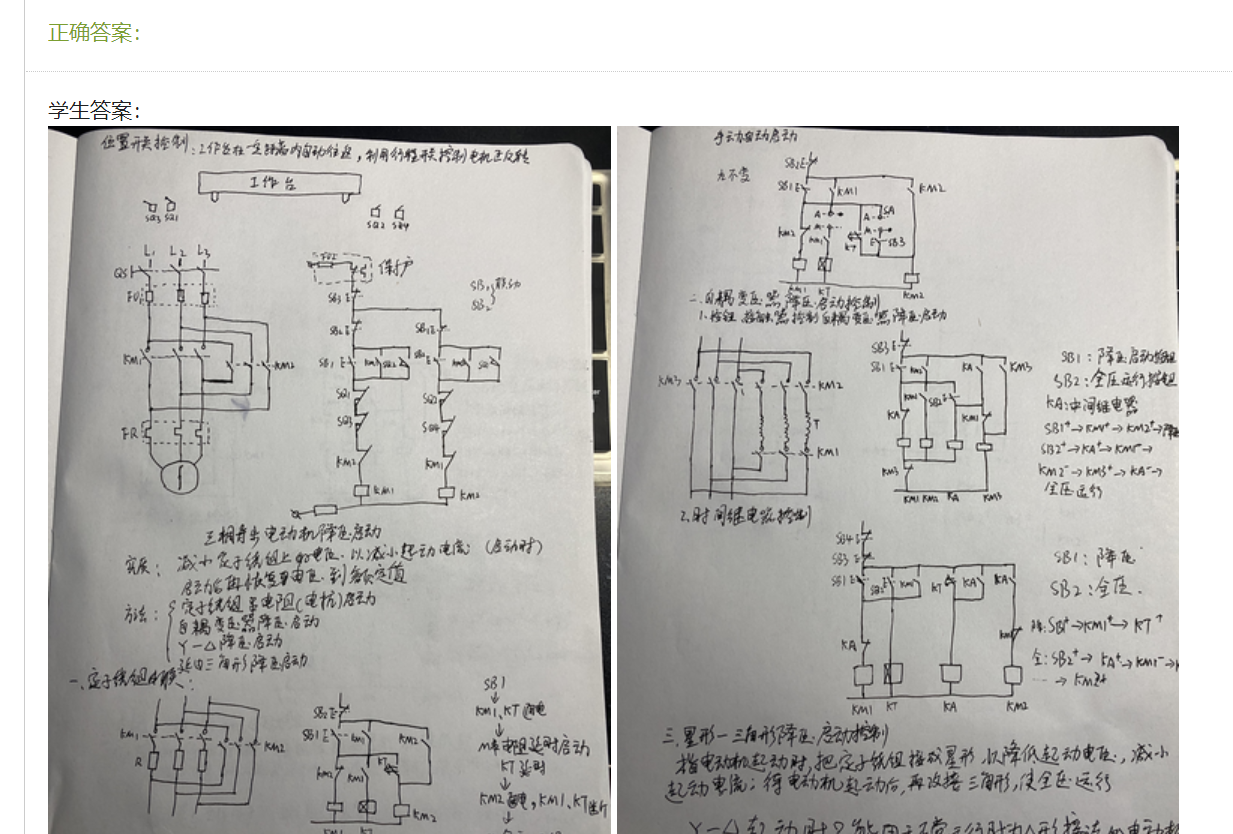 正确答案：
学生答案：
位置开关控制：工作台在一定距离内自动往返，利用行程开关控制电机正反转
工作台
SQ3 SQ1
SQ2 SQ4
L1 L2 L3
QS
FU1
KM1
KM2
FR
FU2
保护
SB3
SB2
SB1
SB1 联动
SB2
SB1 E
KM1
SQ1
SQ2
SQ3
SQ4
KM2
KM1
KM1
KM2
三相异步电动机降压启动
实质：减小定子绕组上的电压，以减小起动电流（启动时）
启动后再恢复电压到额定值
方法：定子绕组串电阻(电抗)启动
自耦变压器降压启动
Y—△降压启动
延边三角形降压启动
一、定子绕组串
KM1
R
KM2
SB2
SB1 E
KM1
KM2
KM2
KM1
KT
KM2
KM1 KT
SB1
KM1、KT通电
串电阻延时启动
KT延时
KM2通电，KM1、KT断
手动自动启动
左不变
SB2
SB1 E
KM1
KM2
A
SA
M
KM2
KM1
KT
SB3
KM1 KT
KM2
二、自耦变压器降压启动控制
1、按钮、接触器控制自耦变压器降压启动
KM3
KM2
T
KM1
SB3
SB1
KM1
KA
KM3
KM1
SB2
KA
KM1
KM3
KM1 KM2 KA KM3
SB1：降压启动按钮
SB2：全压运行按钮
KA：中间继电器
SB1⁺→KM1⁺→KM2⁺→降
SB2⁺→KA⁺→KM1⁻→
KM2⁻→KM3⁺→KA⁻→
全压运行
2、时间继电器控制
SB4
SB3
SB1
SB2
KM1
KT
KA
KA
KA
KM1 KT KA KM2
SB1：降压
SB2：全压.
降：SB1⁺→KM1⁺→KT⁺
全：SB2⁺→KA⁺→KM1⁻→
→KM2⁺
三、星形—三角形降压启动控制
指电动机起动时，把定子绕组接成星形，以降低起动电压，减小
起动电流；待电动机起动后，再改接三角形，使全压运行